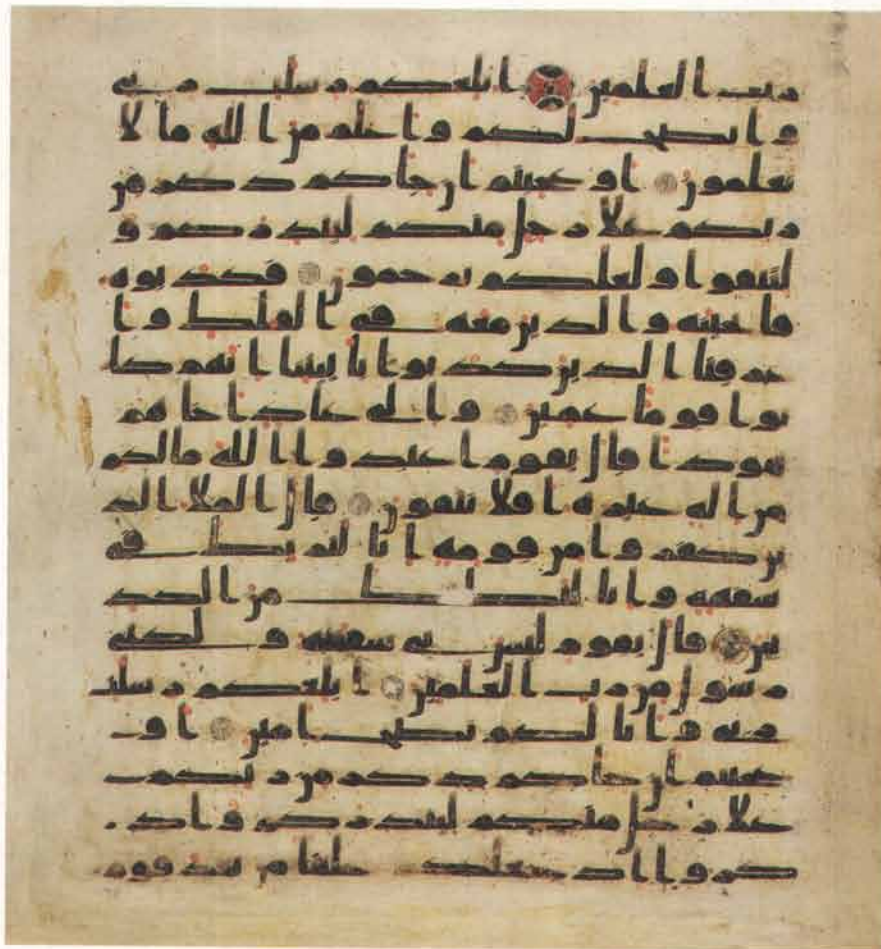 رب العلمين ابلغكم رسلت ربي
وانصح لكم واعلم من الله ما لا
تعلمون او عجبتم ان جاكم ذكر من
ربكم علا رجل منكم لينذركم و
لتتقوا ولعلكم ترحمون فكذبوه
فانجينه والذين معه في الفلك وا
غرقنا الذين كذبوا بايتنا انهم كا
نوا قوما عمين والى عاد اخاهم
هودا قال يقوم اعبدوا الله ما لكم
من اله غيره افلا تتقون قال الملا الذ
ين كفروا من قومه انا لنريك في
سفهة وانا لنظنك من الكذ
بين قال يقوم ليس بي سفهة ولكني
رسول من رب العلمين ابلغكم رسلت
ربي وانا لكم نصح امين او
عجبتم ان جاكم ذكر من ربكم
علا رجل منكم لينذركم واذ
كروا اذ جعلكم خلفا من بعد قوم